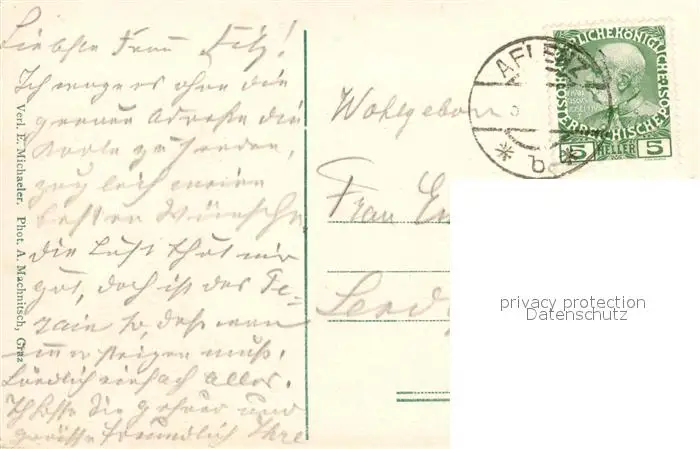 Liebste Frau Fitz!
Ich wage es ohne die
genaue Adresse die
Karte zu senden,
zugleich meine
besten Wünsche
die Luft thut mir
gut, doch ist das Te-
rain so, daß man
immer steigen muß.
Ländlich einfach alles.
Ich hoffe Sie gesund und
grüsse freundlich Ihre
Verl. E. Michaeler. Phot. A. Machnitsch, Graz
Wohlgeboren
Frau
AFLENZ
* a *
KAISERLICHEKÖNIGLICHE
ÖSTERREICHISCHE POST
5 HELLER 5
privacy protection
Datenschutz